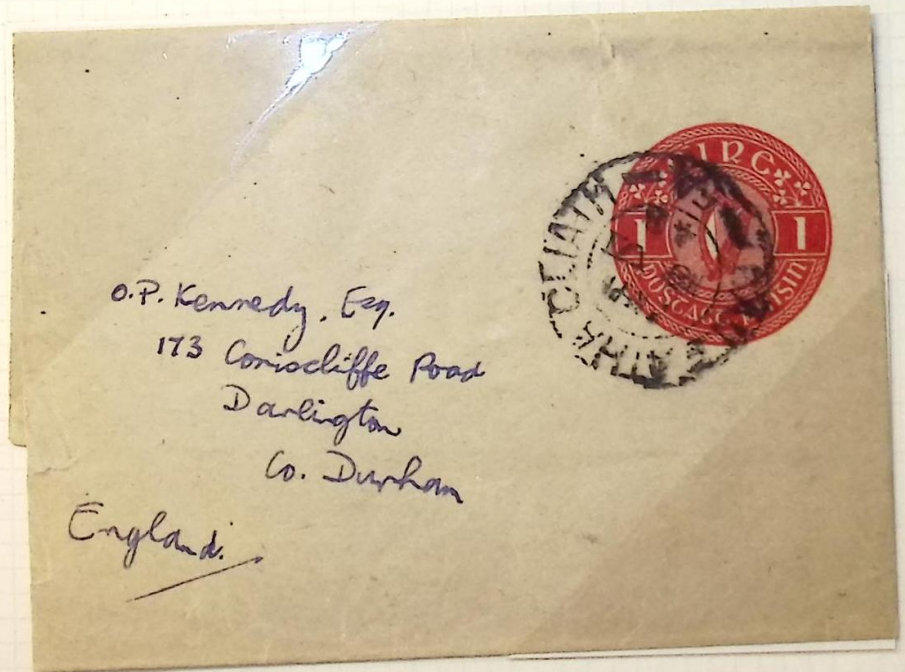 EIRE
1 1
POSTAGE PINSIN
BAILE ATHA CLIATH
O.P. Kennedy, Esq.
173 Coniscliffe Road
Darlington
Co. Durham
England.